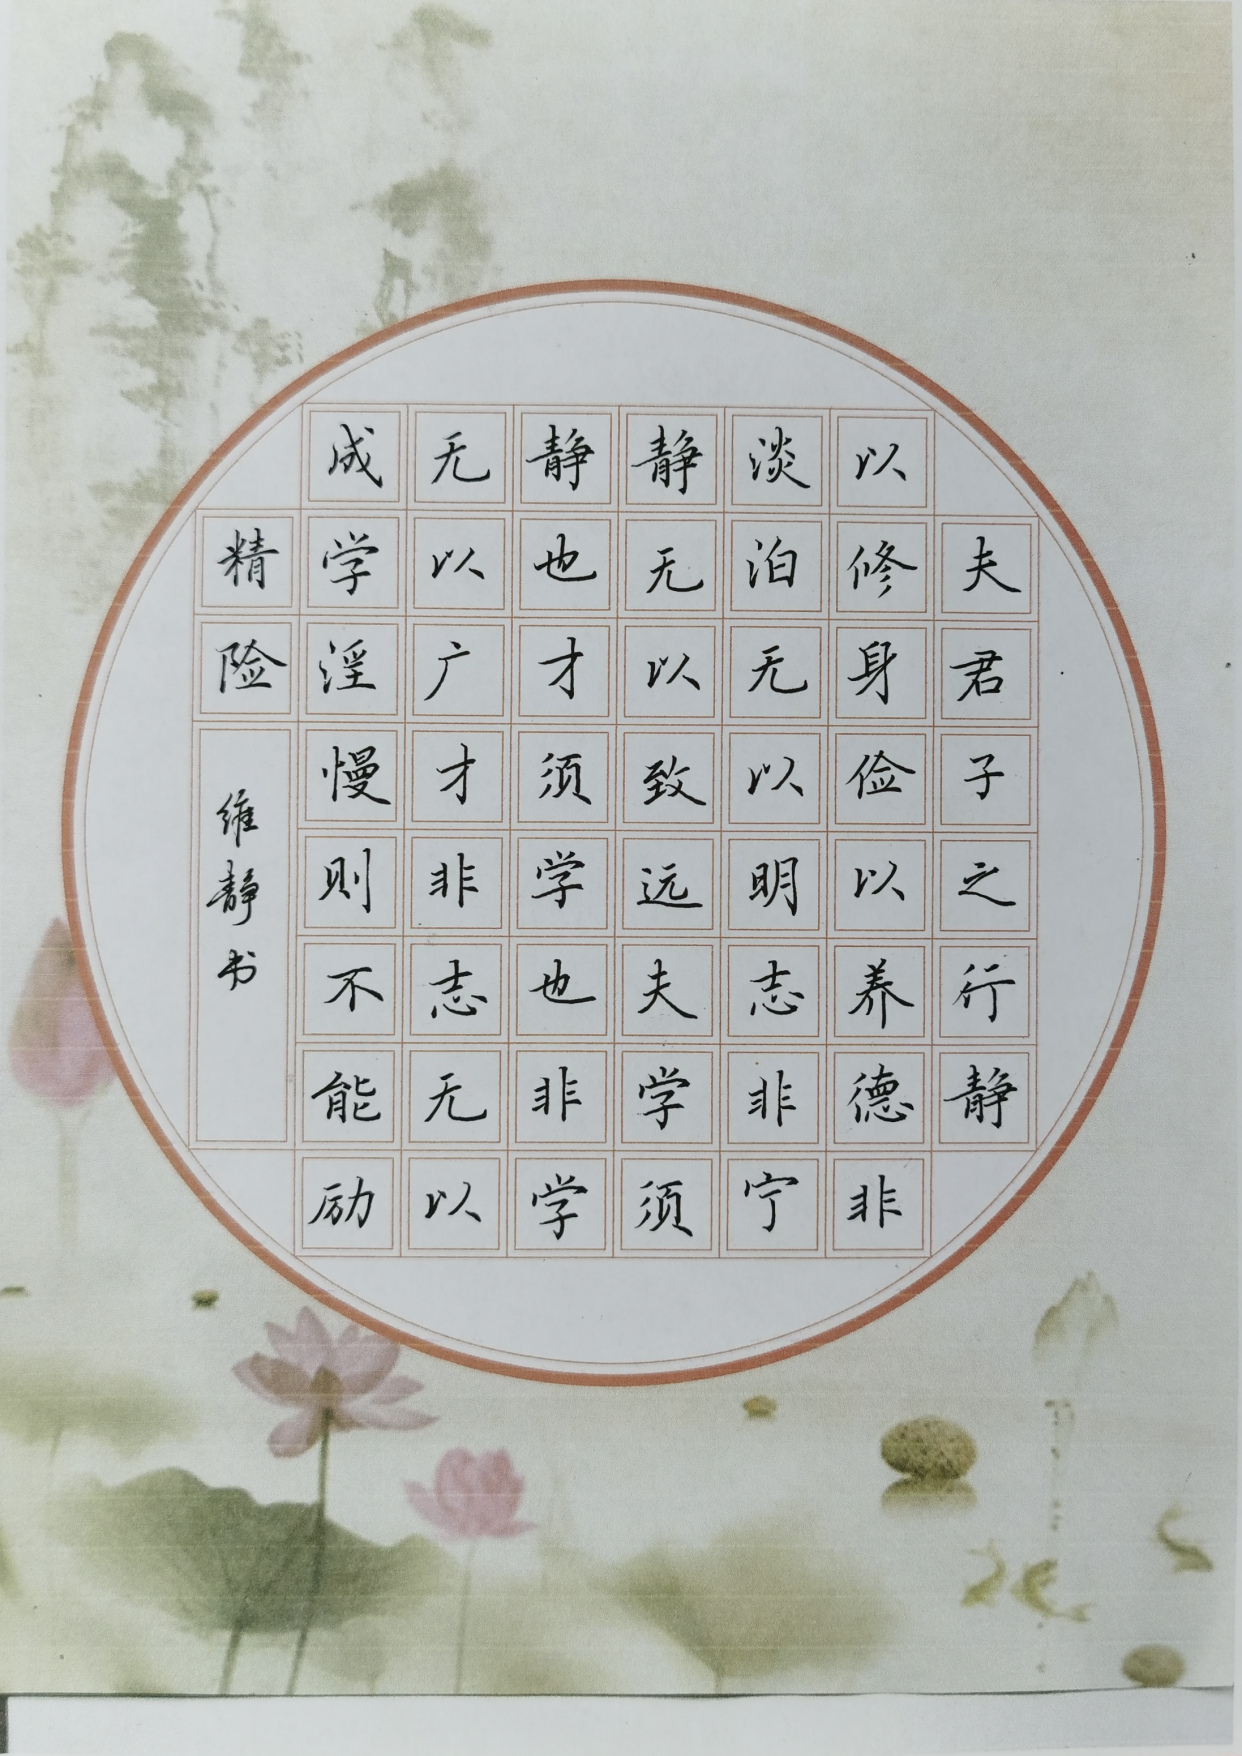 夫君子之行静
以修身俭以养德非
淡泊无以明志非宁
静无以致远夫学须
静也才须学也非学
无以广才非志无以
成学淫慢则不能励
精险
维静书